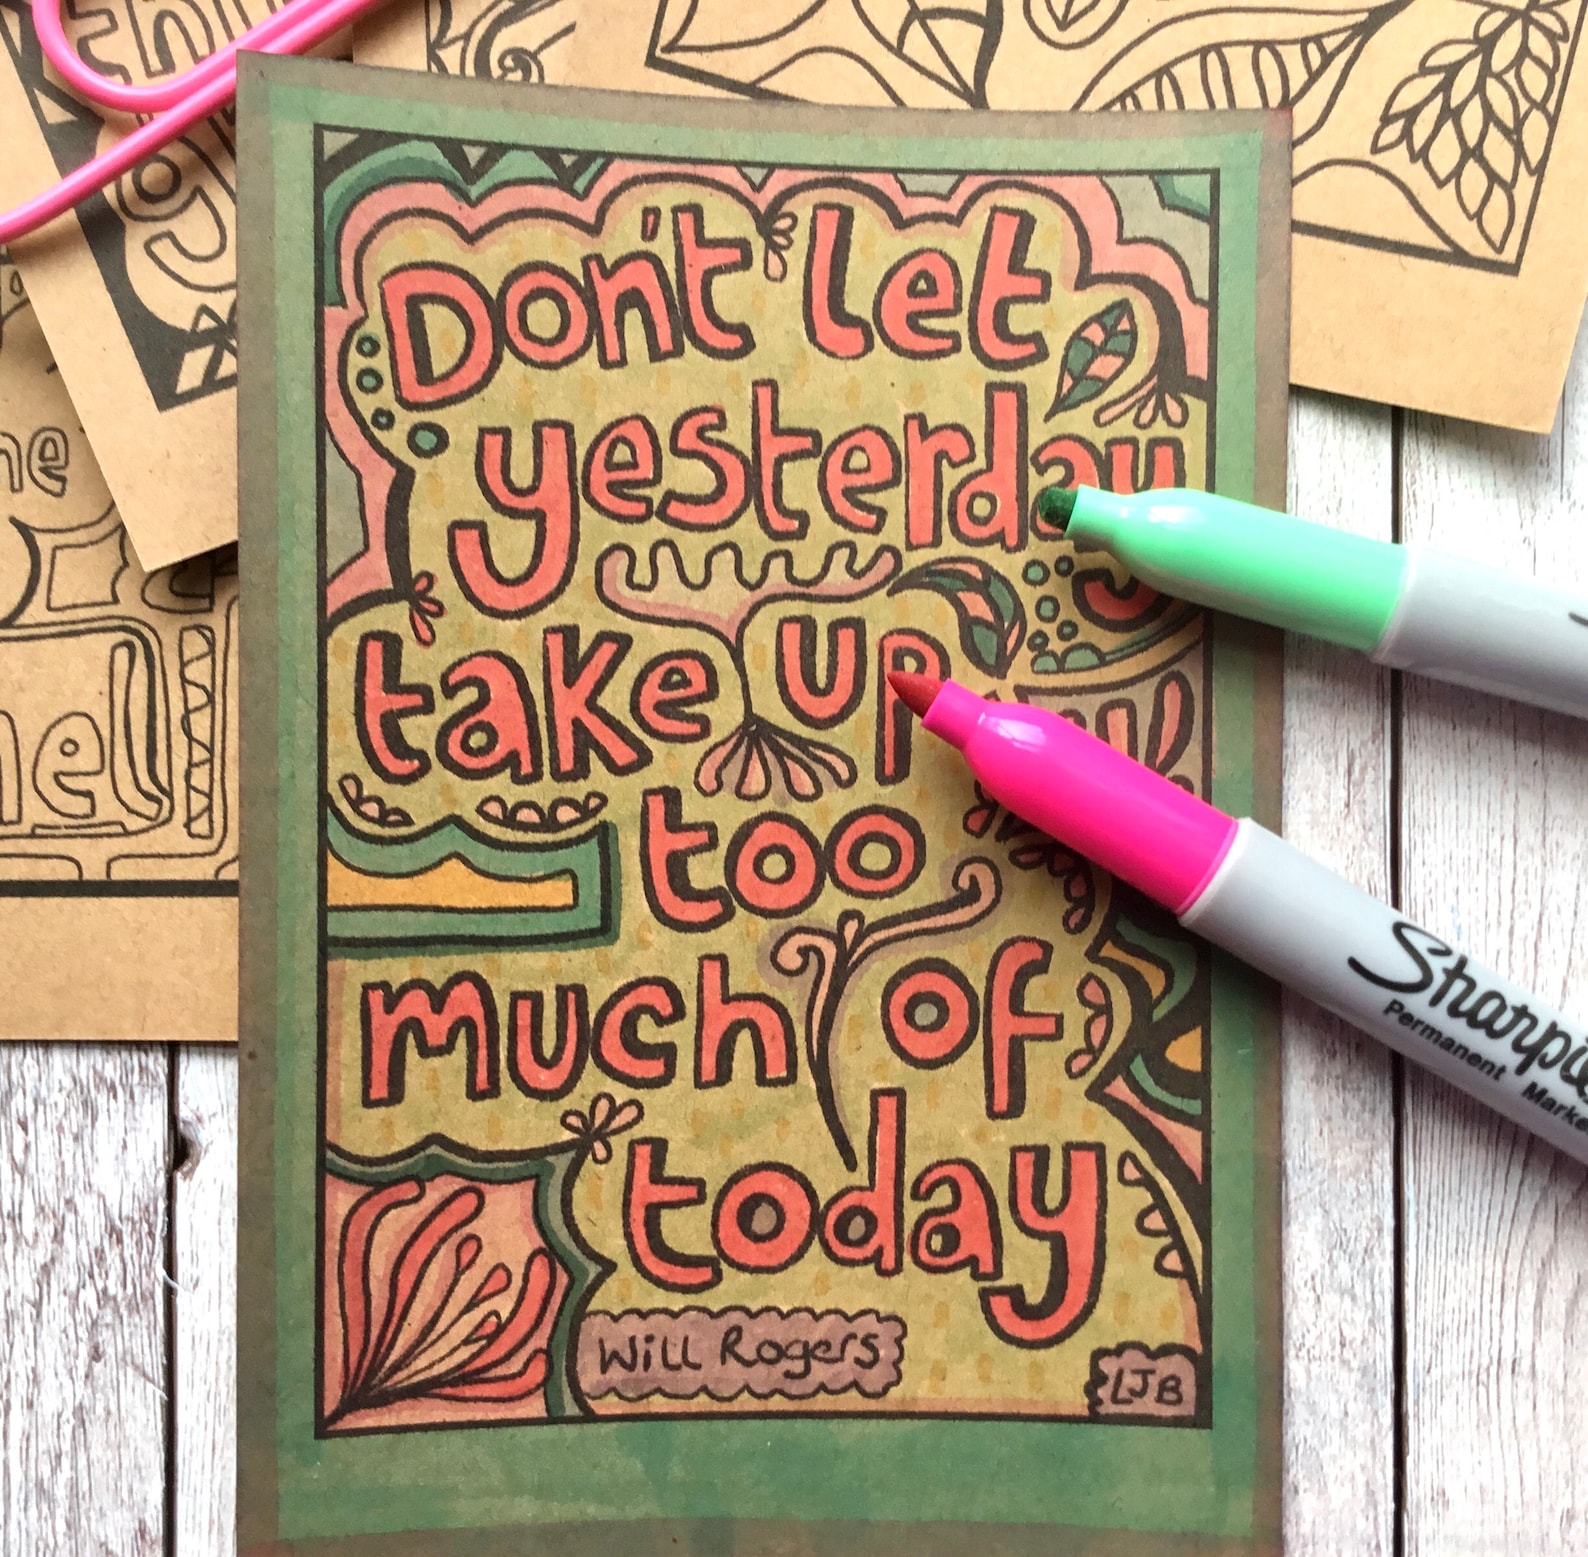 Don't let
yesterday
take up
too
much of
today
Will Rogers
LJB
Sharpie
Permanent Marke